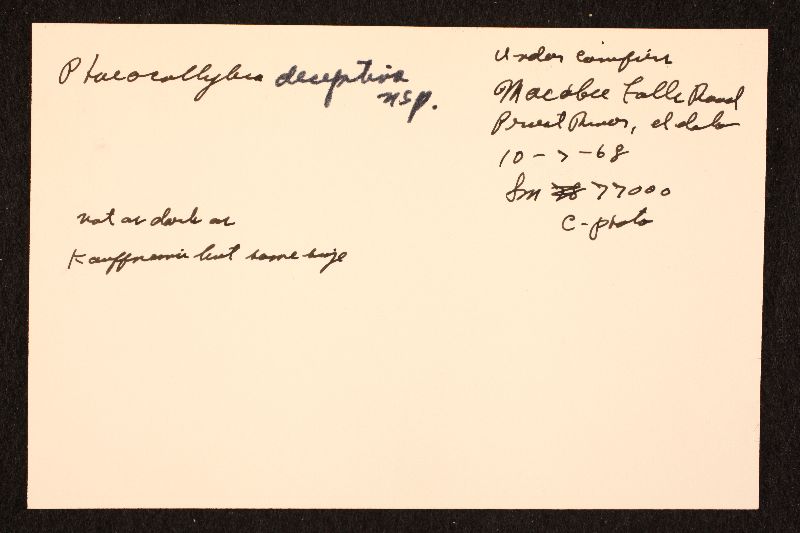 Phaeocollybia deceptiva
nsp.
not as dark as
Kauffmanii but some size
Under conifers
Macabee Falls Road
Priest River, Idaho
10-7-68
Sm 77000
C-photo